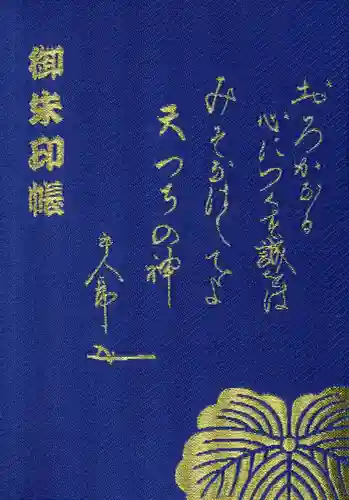 おろかなる
心につくす誠をは
みそなはしてよ
天つちの神
御朱印帳